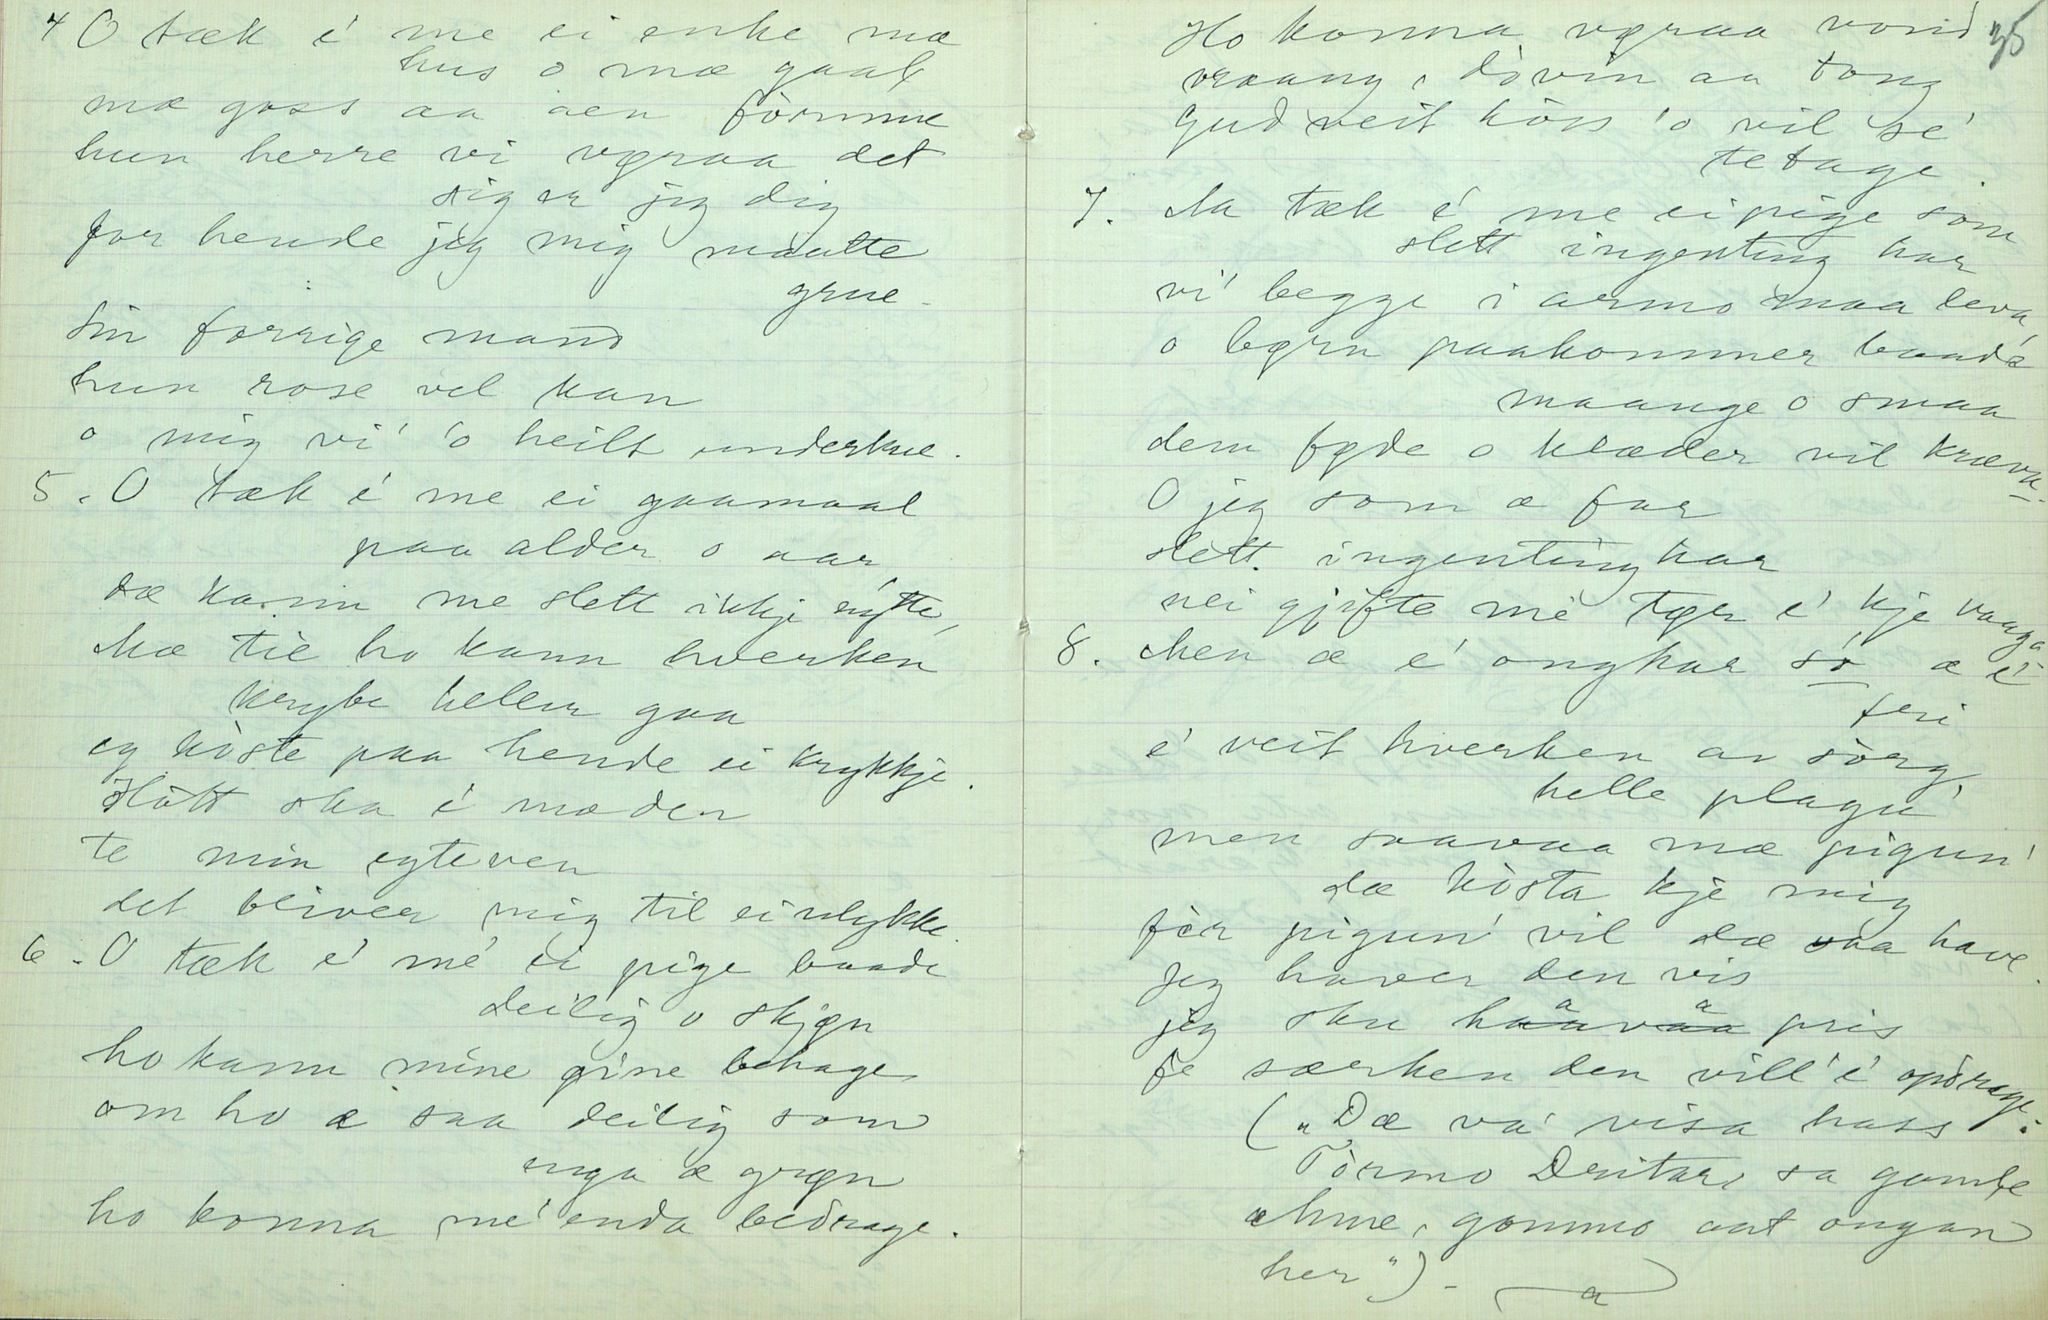 4 O tæk é me ei enke mæ
hus o mæ gaal
mæ goss aa aen förmue
hun herre vi vøraa det
siger jeg dig
for hende jeg mig maatte
grue -
Sin forrige mand
hun rose vel kan
o mig vi' 'o heilt underkue.
5. O tæk é me ei gaamaal
paa alder o aar
dæ kann me slett ikkje nytte,
Mæ tie ho kann hverken
krybe heller gaa
eg köste paa hende ei krykkje.
Slött ska é mæ den
te min egteven
det bliver mig til ei ulykke.
6. O tæk é mé ei pige baade
deilig o skjøn
ho kann mine øine behage
om ho e saa deilig som
enga æ grøn
ho konna mé enda bedrage.
35
Ho konna vøraa vond
vraang, dövin aa tong
Gud veit höss 'o vil sé
te tage.
7. Aa tæk é me ei pige som
slett ingenting har
vi begge i armo maa leva,
o børn paakommer baade
maange o smaa
dem føde o klæder vil kræva.
O jeg som æ far
slett ingenting har
nei gjifte mé tør é kje vaaga
8. Men æ é ongkar so æ é
fri
é veit hverken av sörg,
helle plagu
men svavaa mæ pigun'
dæ kösta kje mig
för pigun' vil dæ saa have.
Jeg haver den vis
jeg ska haavaa pris
a a
fe særken den vill' é opdrage.
(„Dæ va' visa hass
Tormo Dritar, sa gamle
Anne, gommo aat ongan
her") -
a